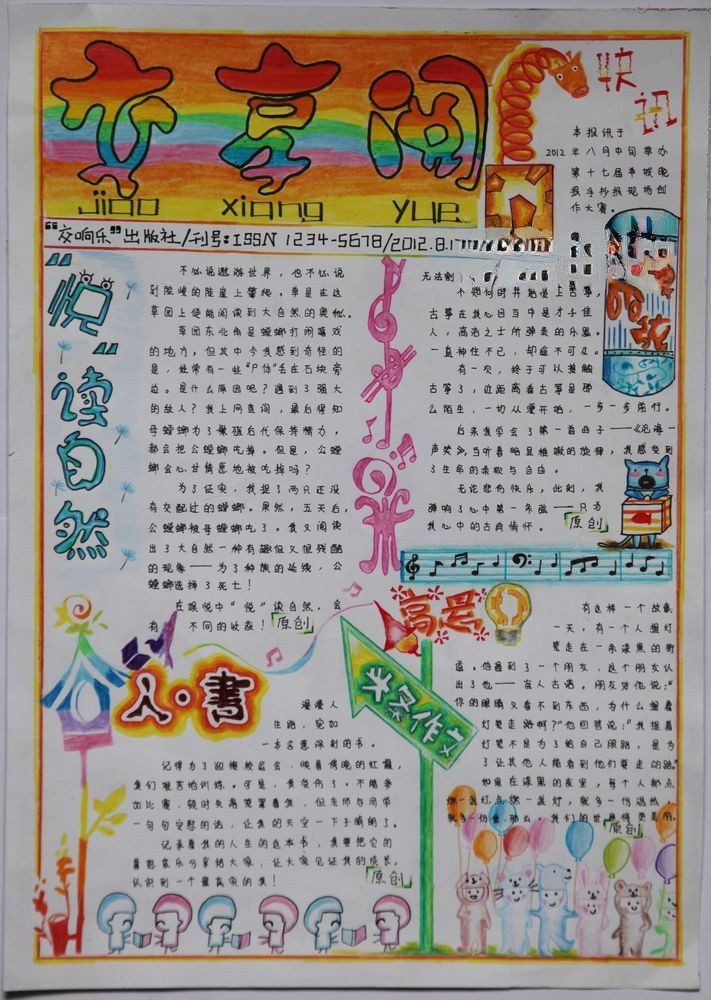 交享阅
Jiao xiang yue
快讯
本报讯于
2012年八月中旬举办
第十七届羊城晚
报手抄报现场创
作大赛。
“交响乐”出版社/刊号:ISSN 1234-5678/2012.8.1
“悦”读自然
不必说遨游世界，也不必说
到险峻的陡崖上攀爬，单是在这
草园上便能阅读到大自然的奥秘。
草园东北角是螳螂打闹嬉戏
的地方，但其中令我感到奇怪的
是，她带有一些“尸体”丢在石块旁
边。是什么原因呢？遇到了强大
的敌人？我上网查阅，最后得知
母螳螂为了繁殖后代保养精力，
都会把公螳螂吃掉。但是，公螳
螂会心甘情愿地被吃掉吗？
为了证实，我捉了两只还没
有交配过的螳螂。果然，五天后，
公螳螂被母螳螂吃了。我又阅读
出了大自然一种有趣但又很残酷
的现象——为了种族的延续，公
螳螂选择了死亡！
在娱悦中“悦”读自然，会
有 不同的收获！
原创
无法割
不知何时开始爱上古筝，
古筝在我心目当中是才子佳
人，高洁之士所弹奏的乐器。
一直神往不已，却触不可及。
有一次，终于可以接触
古筝了，近距离看古筝是那
么陌生，一切从爱开始，一步一步前行。
后来我学会了第一首曲子——《沧海一
声笑》，当听着略显稚嫩的旋律，我感受到
了生命的柔软与自由。
无论悲伤快乐，此刻，我
弹响了心中第一条弦——只为
我心中的古典情怀。
原创
“高灵”
头条作文
有这样一个故事：
一天，有一个人提灯
笼走在一条漆黑的街
道。他遇到了一个朋友，这个朋友认
出了他——盲人古诺。朋友对他说：“
你的眼睛又看不到东西，为什么提着
灯笼走路啊？”他回答说：“我提着
灯笼不是为了给自己照路，是为
了让其他人能看到他们要走的路。”
如果在漆黑的夜里，每个人都点
燃一盏灯，点燃一盏灯，就多一份温热，
就多一份光，那么，我们的世界将更美丽。
原创
人·書
漫漫人
生路，宛如
一本名意深刻的书。
记得为了迎接校运会，映着傍晚的红霞，
我们艰苦地训练。可是，我负伤了，不能参
加比赛，顿时失落笼罩着我，但老师与同学
一句句安慰的话，让我的天空一下子晴朗了。
记录着我的人生的这本书，我要把它的
喜怒哀乐分享给大家，让大家见证我的成长，
认识到一个最真实的我！
原创